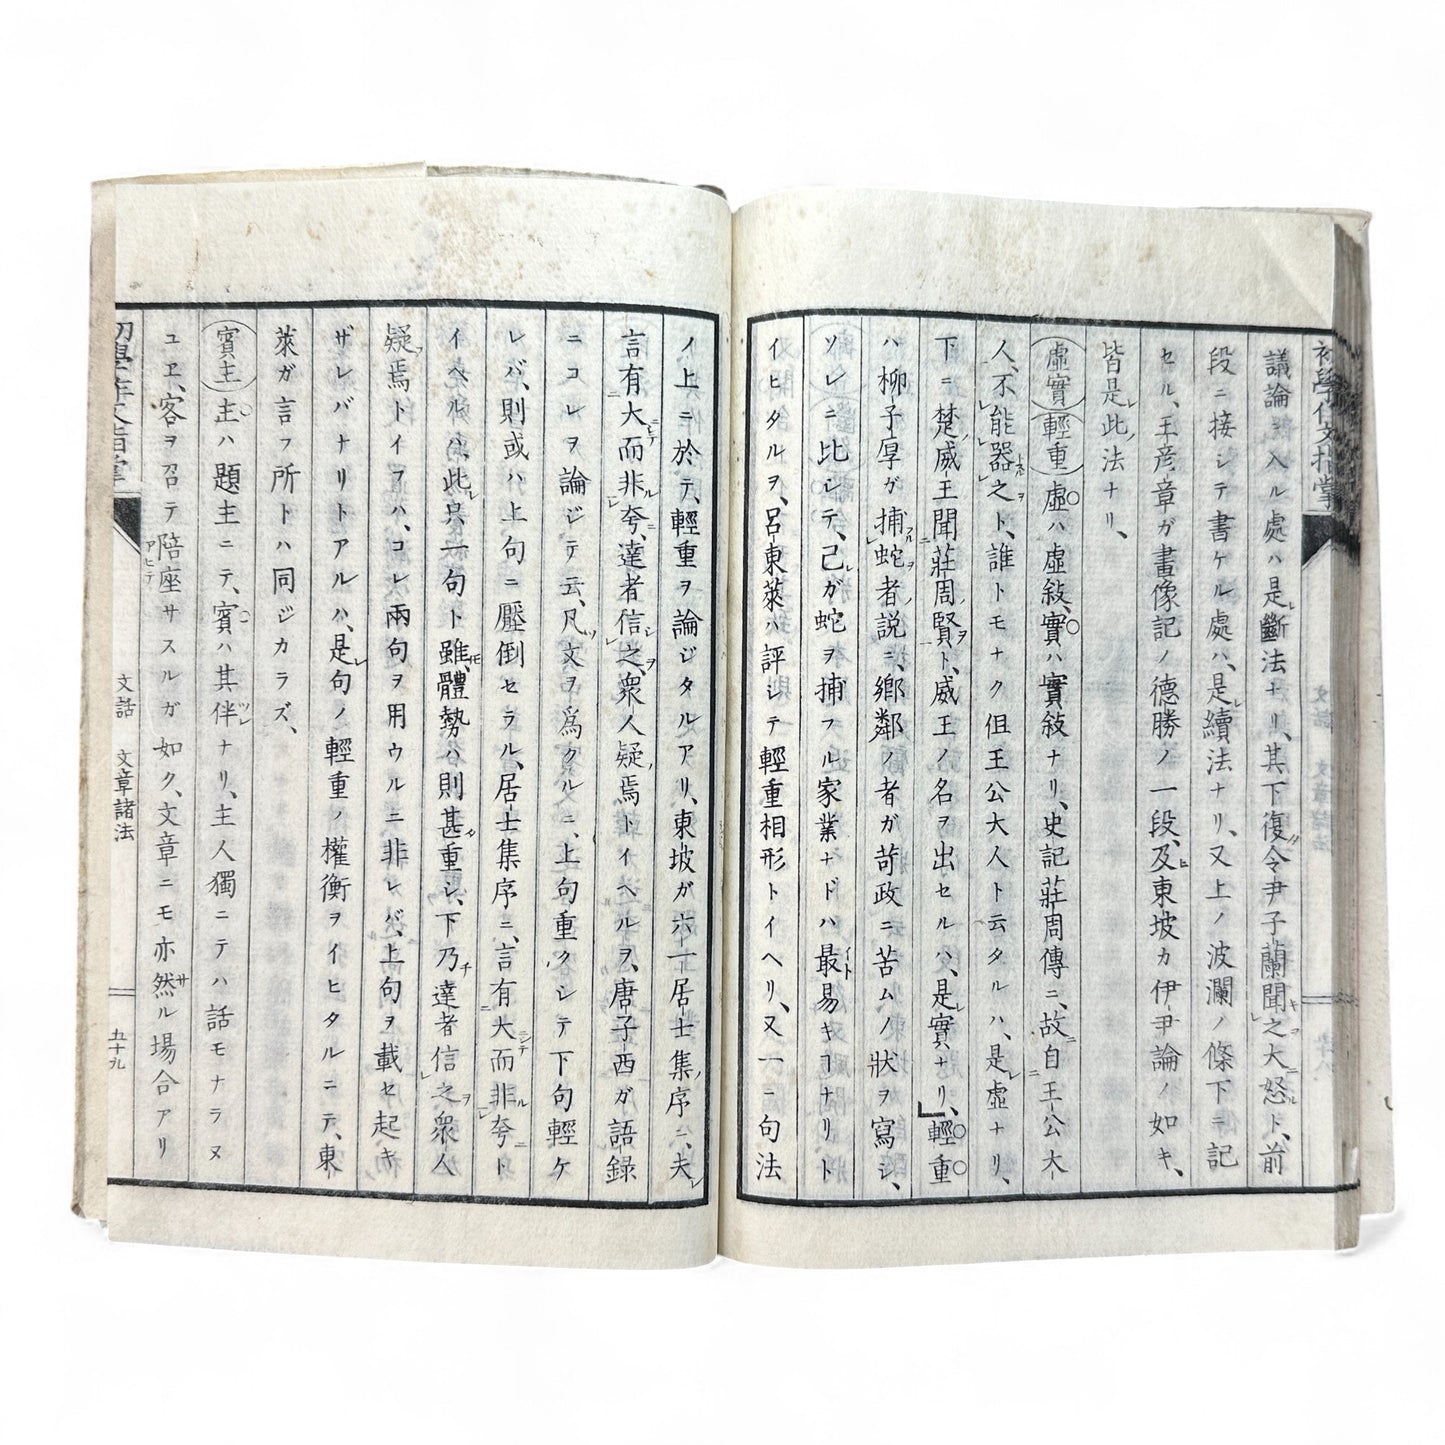 初學作文指掌
議論ニ入ル處ハ是斷法ナリ、其下復令尹子蘭聞之大怒ト、前
段ニ接シテ書ケル處ハ、是續法ナリ、又上ノ波瀾ノ條下ニ記
セル、王彦章ガ畫像記ノ德勝ノ一段、及東坡カ伊尹論ノ如キ、
皆是此法ナリ、
虛實 輕重 虛ハ虛敍、實ハ實敍ナリ、史記莊周傳ニ、故自王公大
人、不能器之ト、誰トモナク但王公大人ト云タルハ、是虛ナリ、
下ニ楚威王聞莊周賢ト、威王ノ名ヲ出セルハ、是實ナリ、輕重
ハ柳子厚ガ捕蛇者說ニ、鄉鄰ノ者ガ苛政ニ苦ムノ狀ヲ寫シ、
ソレニ比シテ、己ガ蛇ヲ捕フル家業ナドハ最易キコナリト
イヒタルヲ、呂東萊ハ評シテ輕重相形トイヘリ、又一ニ句法
ノ上ニ於テ、輕重ヲ論ジタルアリ、東坡ガ六一居士集序ニ、夫
言有大而非夸、達者信之、衆人疑焉トイヘルヲ、唐子西ガ語録
ニコレヲ論ジテ云、凡文ヲ爲クルニ、上句重クシテ下句輕ケ
レバ、則或ハ上句ニ壓倒セラル、居士集序ニ、言有大而非夸ト
イヘルハ、此只一句ト雖、體勢ハ則甚重シ、下乃達者信之衆人
疑焉トイフハ、コレ兩句ヲ用ウルニ非レバ、上句ヲ載セ起キ
ザレバナリトアルハ、是句ノ輕重ノ權衡ヲイヒタルニテ、東
萊ガ言フ所トハ同ジカラズ、
賓主 主ハ題主ニテ、賓ハ其伴ナリ、主人獨ニテハ話モナラヌ
ユヱ、客ヲ召テ陪座サスルガ如ク、文章ニモ亦然ル場合アリ
初學作文指掌 文話 文章諸法 五十九